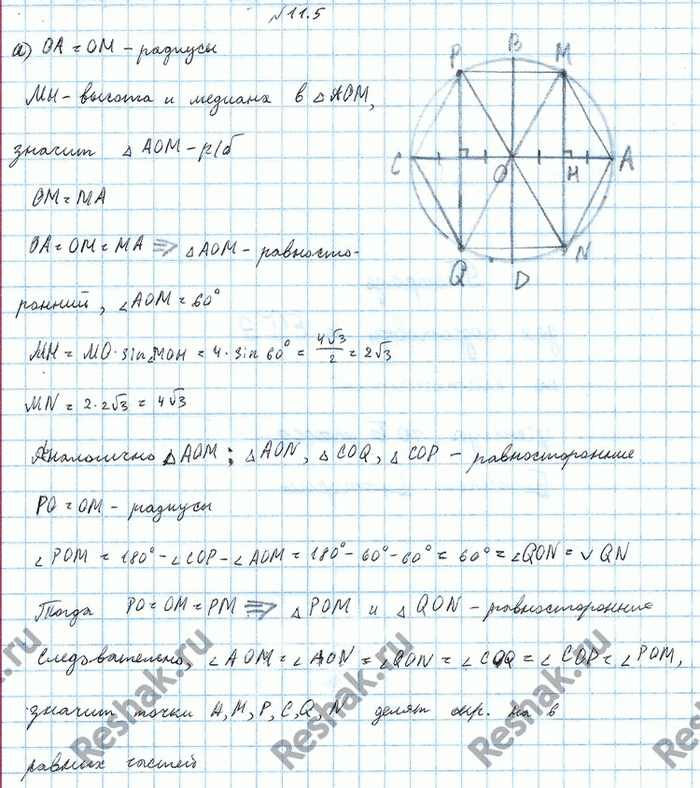 №11.5
а) OA = OM - радиусы
MH - высота и медиана в △AOM,
значит △AOM - р/б
OM = MA
OA = OM = MA ⇒ △AOM - равносто-
ронний, ∠AOM = 60°
MH = MO · sin∠MOH = 4 · sin 60° = 4√3/2 = 2√3
MN = 2 · 2√3 = 4√3
Аналогично △AOM; △AON, △COQ, △COP - равносторонние
PO = OM - радиусы
∠POM = 180° - ∠COP - ∠AOM = 180° - 60° - 60° = 60° = ∠QON = ◡QN
Тогда PO = OM = PM ⇒ △POM и △QON - равносторонние
Следовательно, ∠AOM = ∠AON = ∠QON = ∠COQ = ∠COP = ∠POM,
значит точки A, M, P, C, Q, N делят окр. на 6
равных частей
P B M
C O H A
Q D N
Reshak.ru
Reshak.ru
Reshak.ru